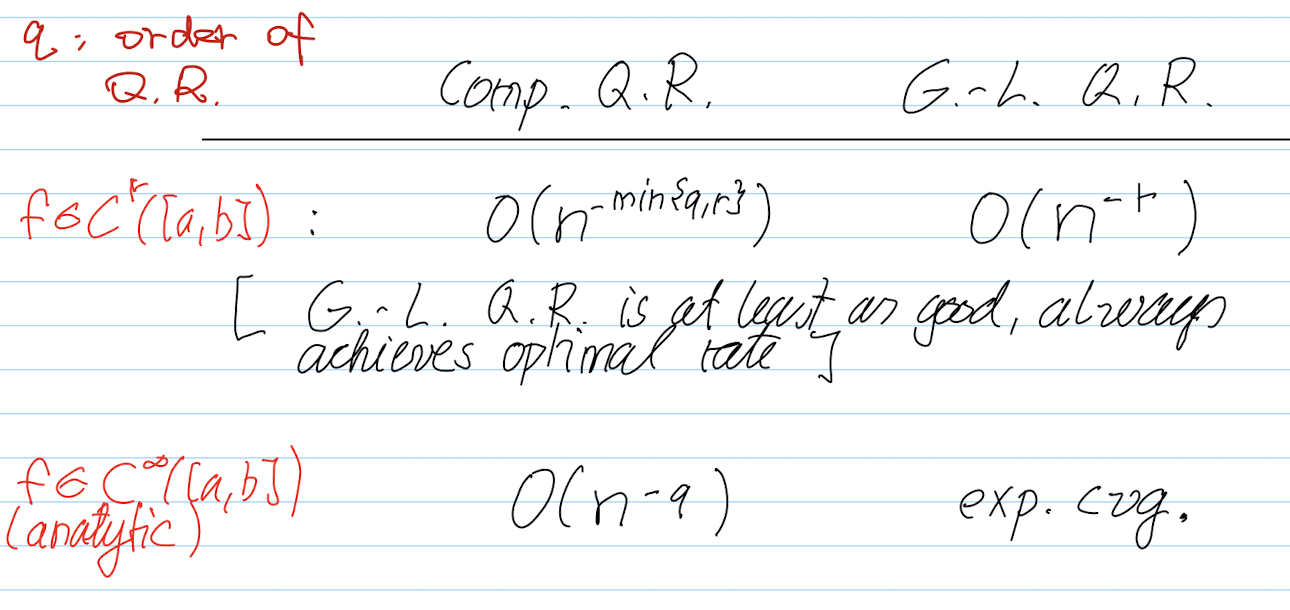 q: order of
Q.R.
Comp. Q.R. G.-L. Q.R.
f∈C^r([a,b]) : O(n^{-min{q,r}}) O(n^{-r})
[ G.-L. Q.R. is at least as good, always
achieves optimal rate ]
f∈C^∞([a,b]) O(n^{-q}) exp. cvg.
(analytic)